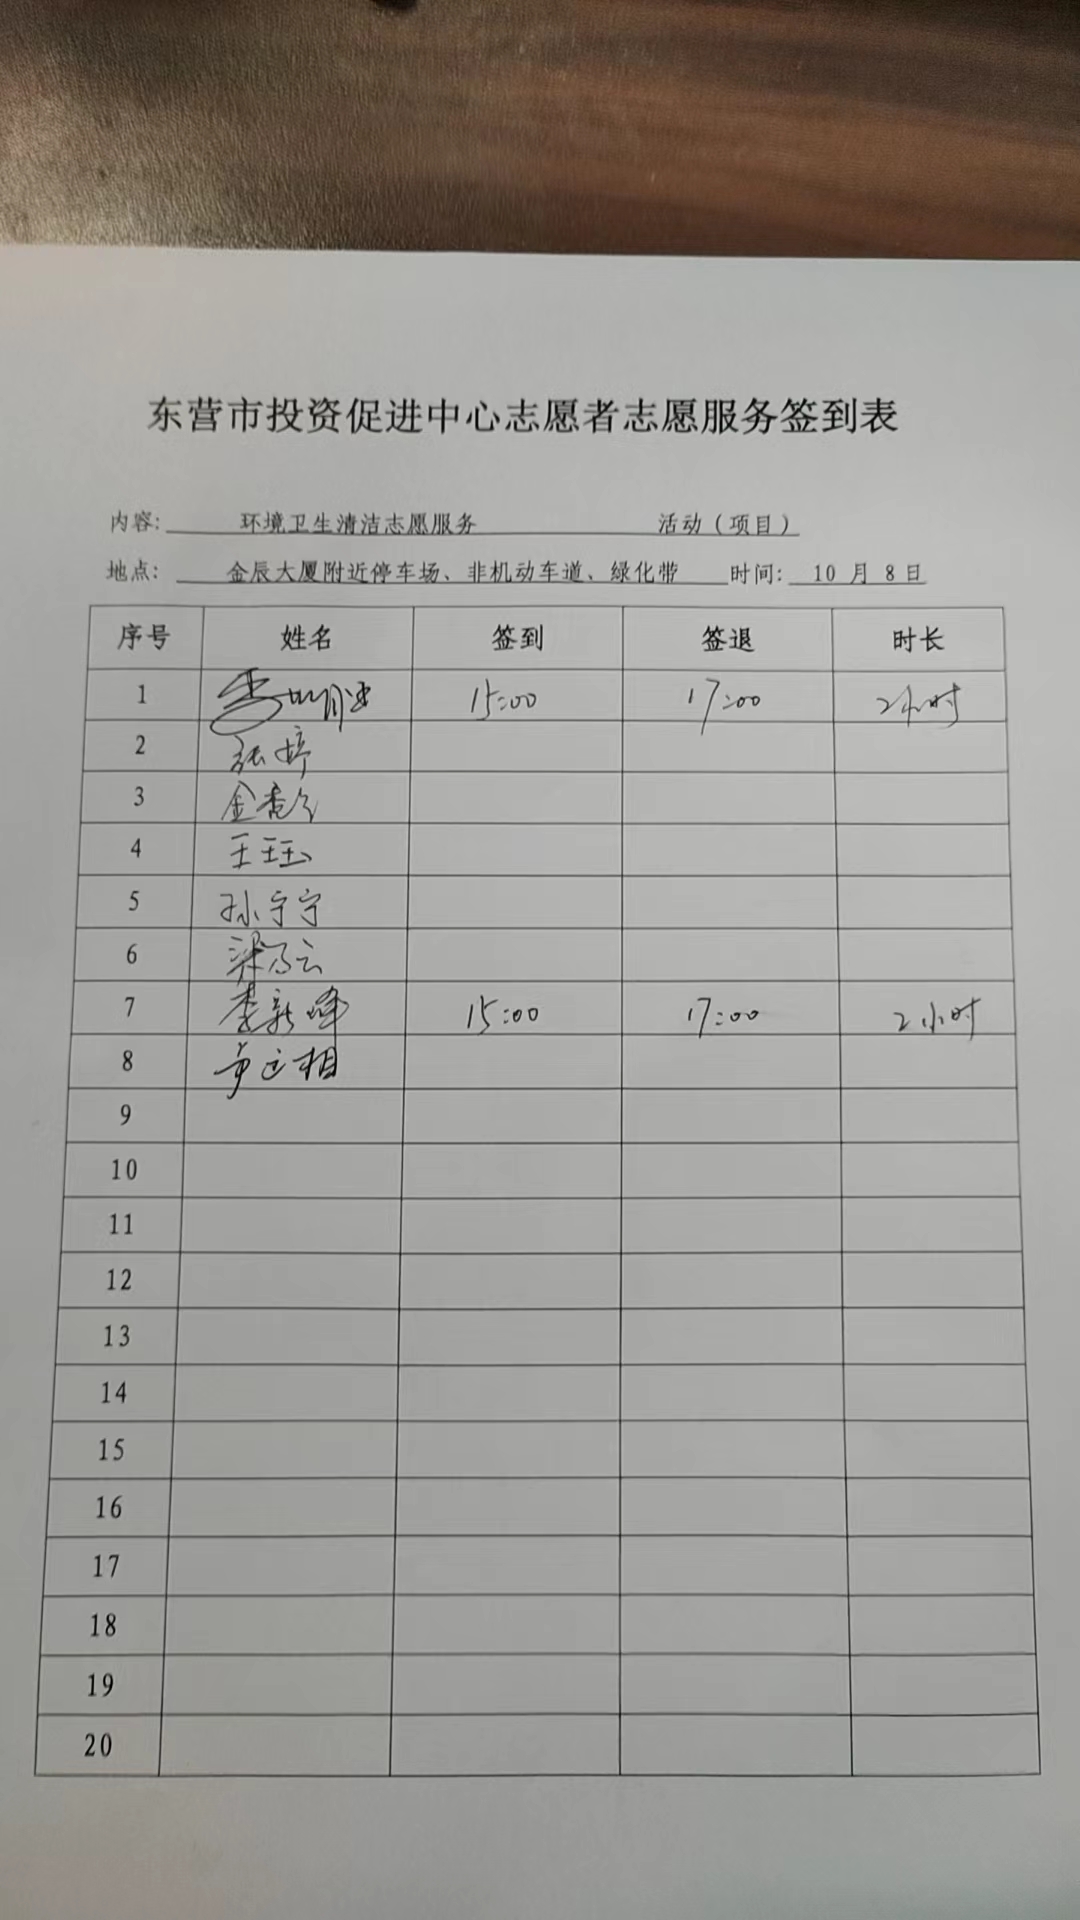 东营市投资促进中心志愿者志愿服务签到表
内容: 环境卫生清洁志愿服务 活动（项目）
地点: 金辰大厦附近停车场、非机动车道、绿化带 时间: 10 月 8 日
序号 姓名 签到 签退 时长
1 15:00 17:00 2小时
2 张婷
3 金
4 王珏
5 孙宁宁
6 梁乃云
7 李新峰 15:00 17:00 2小时
8 相
9
10
11
12
13
14
15
16
17
18
19
20